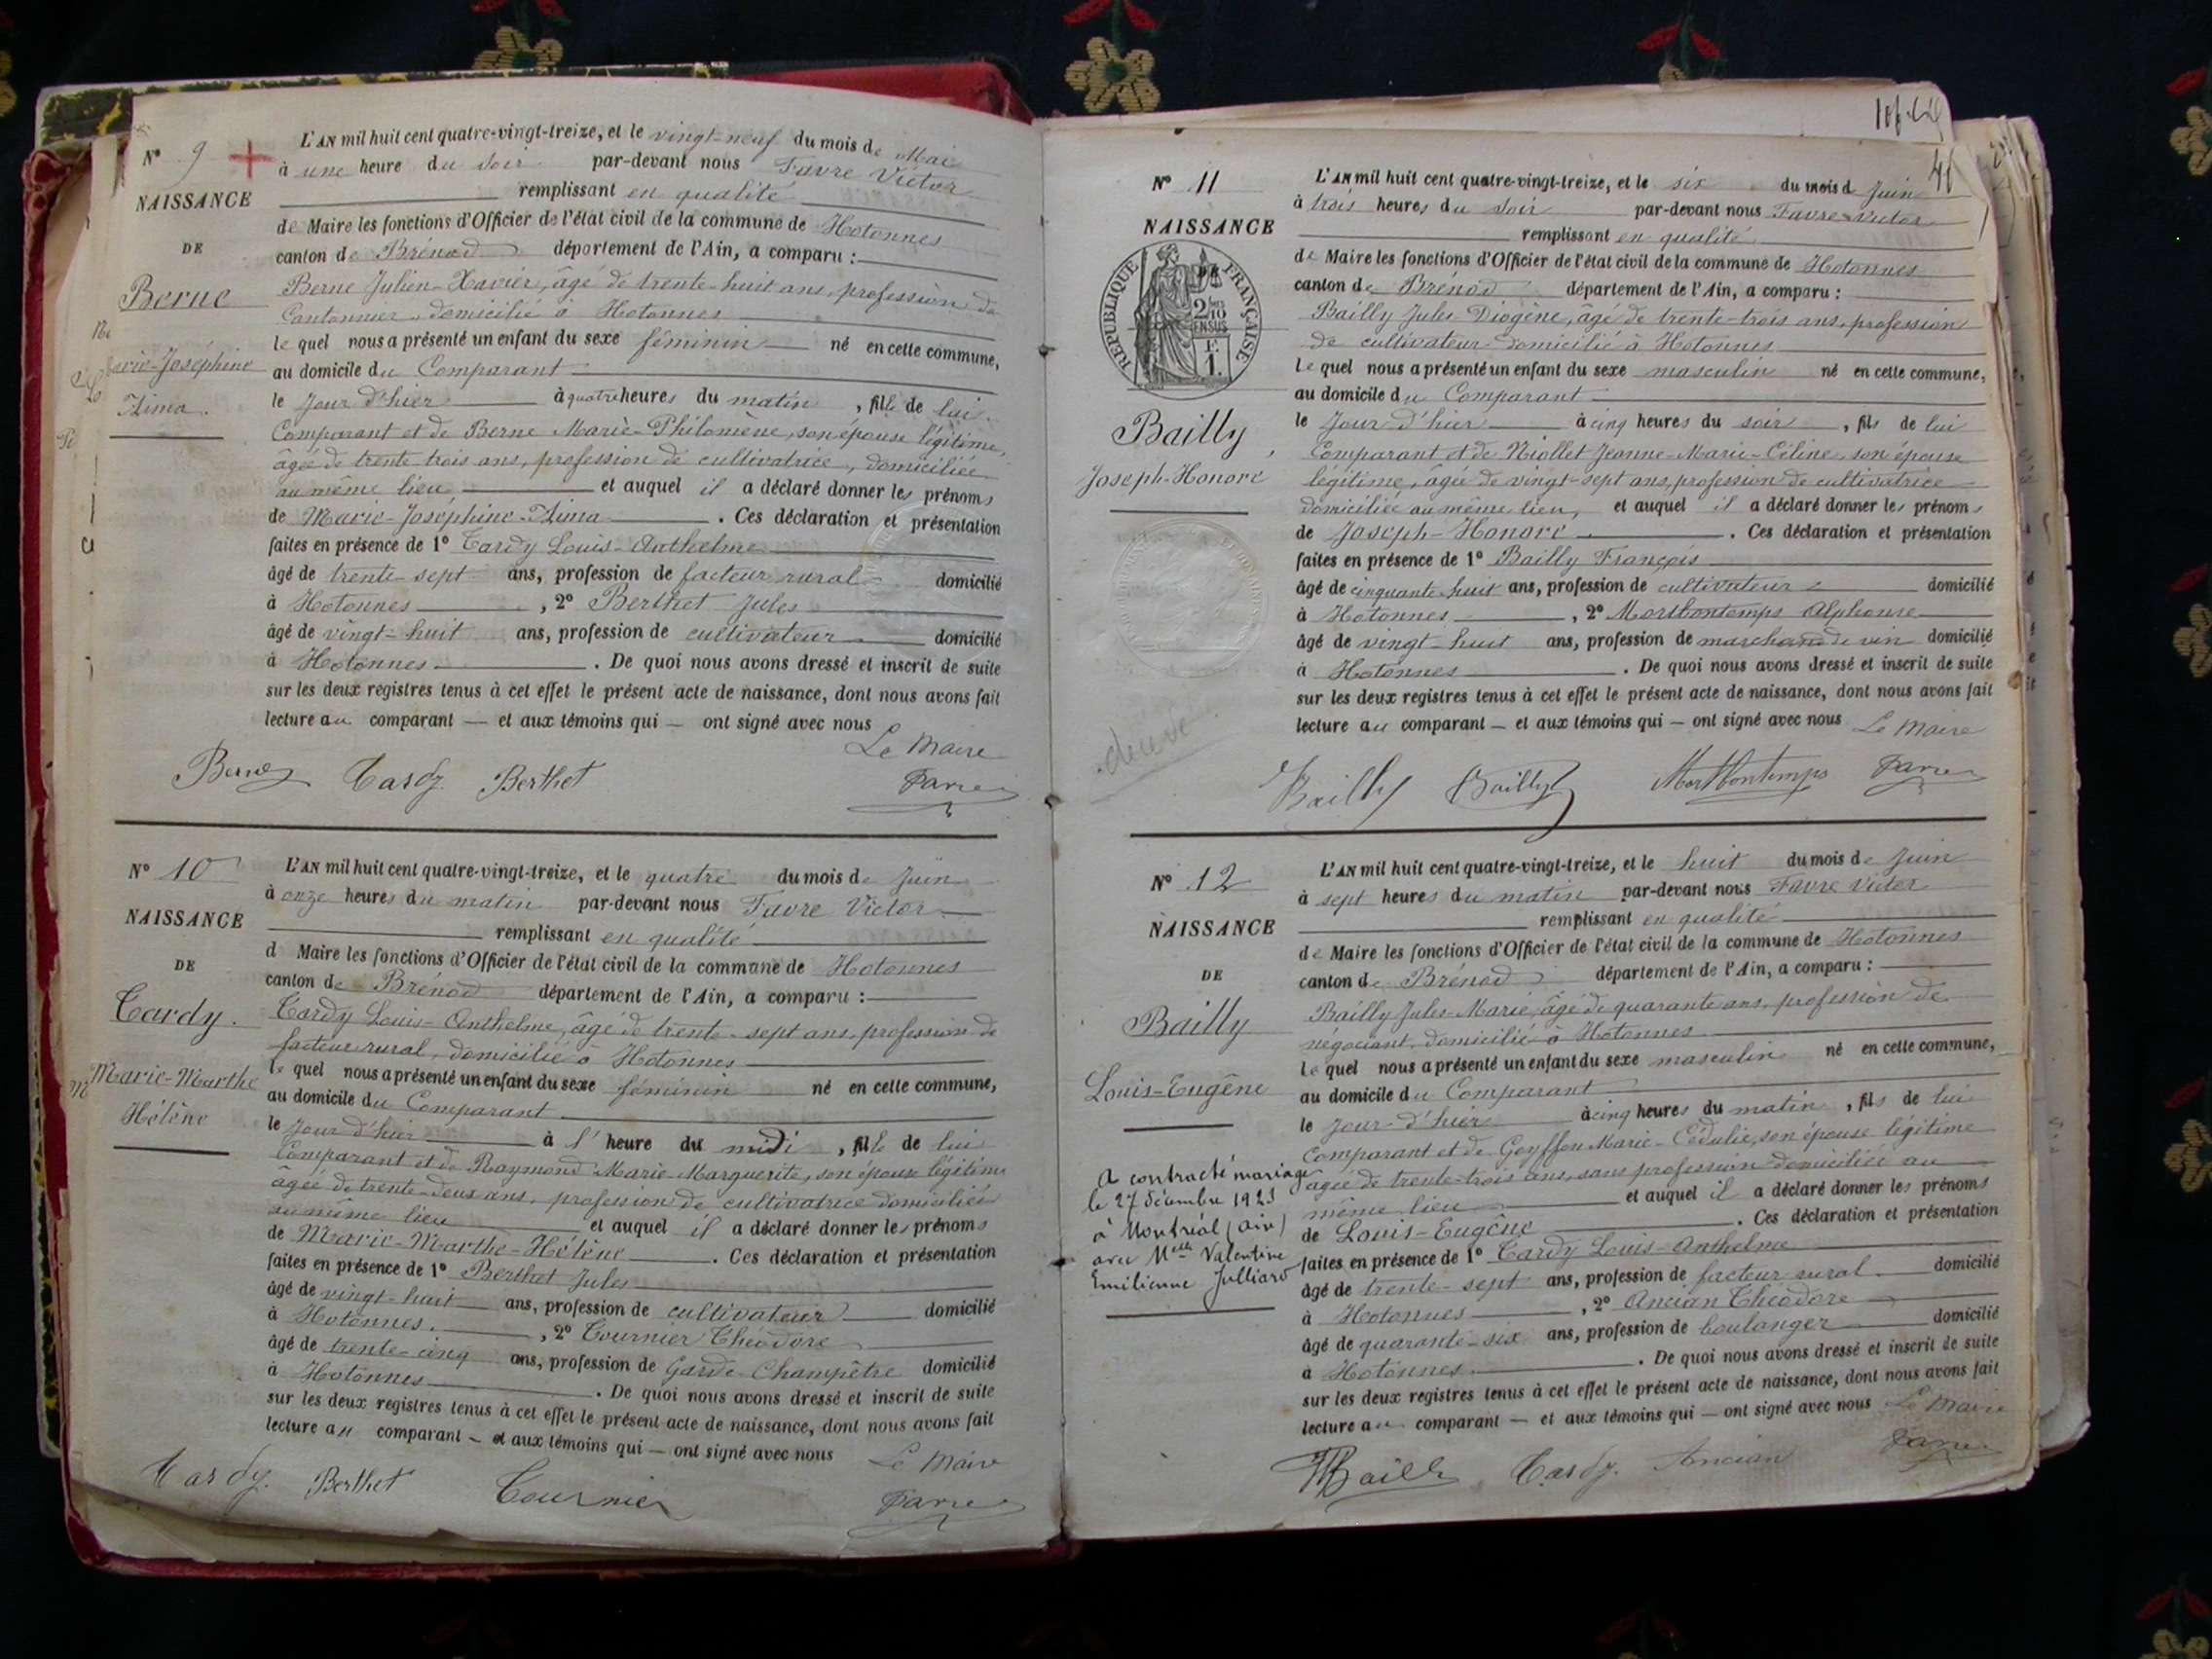 N° 9
NAISSANCE
DE
Berne
Marie-Joséphine
Zima.
L'AN mil huit cent quatre-vingt-treize, et le vingt-neuf du mois de Mai
à une heure du soir par-devant nous Favre Victor
remplissant en qualité
de Maire les fonctions d'Officier de l'état civil de la commune de Hotonnes
canton de Brénod département de l'Ain, a comparu :
Berne Julien-Xavier, âgé de trente-huit ans, profession de
Cantonnier, domicilié à Hotonnes
le quel nous a présenté un enfant du sexe féminin né en cette commune,
au domicile du Comparant
le jour d'hier à quatre heures du matin, fille de lui
Comparant et de Berne Marie-Philomène, son épouse légitime,
âgée de trente-trois ans, profession de cultivatrice, domiciliée
au même lieu et auquel il a déclaré donner les prénoms
de Marie-Joséphine-Zima. Ces déclaration et présentation
faites en présence de 1° Tardy Louis-Anthelme
âgé de trente-sept ans, profession de facteur rural domicilié
à Hotonnes, 2° Berthet Jules
âgé de vingt-huit ans, profession de cultivateur domicilié
à Hotonnes. De quoi nous avons dressé et inscrit de suite
sur les deux registres tenus à cet effet le présent acte de naissance, dont nous avons fait
lecture au comparant — et aux témoins qui — ont signé avec nous
Le Maire
Berne Tardy Berthet Favre
N° 10
NAISSANCE
DE
Tardy.
Marie-Marthe
Hélène
L'AN mil huit cent quatre-vingt-treize, et le quatre du mois de Juin
à onze heures du matin par-devant nous Favre Victor
remplissant en qualité
d Maire les fonctions d'Officier de l'état civil de la commune de Hotonnes
canton de Brénod département de l'Ain, a comparu :
Tardy Louis-Anthelme, âgé de trente-sept ans, profession de
facteur rural, domicilié à Hotonnes
le quel nous a présenté un enfant du sexe féminin né en cette commune,
au domicile du Comparant
le jour d'hier à l'heure du midi, fille de lui
Comparant et de Raymond Marie-Marguerite, son épouse légitime
âgée de trente-deux ans, profession de cultivatrice domiciliée
au même lieu et auquel il a déclaré donner les prénoms
de Marie-Marthe-Hélène. Ces déclaration et présentation
faites en présence de 1° Berthet Jules
âgé de vingt-huit ans, profession de cultivateur domicilié
à Hotonnes, 2° Tournier Théodore
âgé de trente-cinq ans, profession de Garde-Champêtre domicilié
à Hotonnes. De quoi nous avons dressé et inscrit de suite
sur les deux registres tenus à cet effet le présent acte de naissance, dont nous avons fait
lecture au comparant — et aux témoins qui — ont signé avec nous
Le Maire
Tardy. Berthet Tournier Favre
N° 11
NAISSANCE
RÉPUBLIQUE FRANÇAISE
2/10 EN SUS
1 F.
Bailly
Joseph-Honoré
L'AN mil huit cent quatre-vingt-treize, et le six du mois d Juin
à trois heures du soir par-devant nous Favre Victor
remplissant en qualité
de Maire les fonctions d'Officier de l'état civil de la commune de Hotonnes
canton de Brénod département de l'Ain, a comparu :
Bailly Jules-Diogène, âgé de trente-trois ans, profession
de cultivateur domicilié à Hotonnes
le quel nous a présenté un enfant du sexe masculin né en cette commune,
au domicile du Comparant
le jour d'hier à cinq heures du soir, fils de lui
Comparant et de Niollet Jeanne-Marie-Céline, son épouse
légitime, âgée de vingt-sept ans, profession de cultivatrice
domiciliée au même lieu, et auquel il a déclaré donner les prénoms
de Joseph-Honoré. Ces déclaration et présentation
faites en présence de 1° Bailly François
âgé de cinquante-huit ans, profession de cultivateur domicilié
à Hotonnes, 2° Mortbontemps Alphonse
âgé de vingt-huit ans, profession de marchand de vin domicilié
à Hotonnes. De quoi nous avons dressé et inscrit de suite
sur les deux registres tenus à cet effet le présent acte de naissance, dont nous avons fait
lecture au comparant — et aux témoins qui — ont signé avec nous Le Maire
Bailly Bailly Mortbontemps Favre
N° 12
NAISSANCE
DE
Bailly
Louis-Eugêne
A contracté mariage
le 27 décembre 1923
à Montréal (Ain)
avec Melle Valentine
Emilienne Julliard
L'AN mil huit cent quatre-vingt-treize, et le huit du mois de Juin
à sept heures du matin par-devant nous Favre Victor
remplissant en qualité
de Maire les fonctions d'Officier de l'état civil de la commune de Hotonnes
canton de Brénod département de l'Ain, a comparu :
Bailly Jules-Marie, âgé de quarante ans, profession de
négociant, domicilié à Hotonnes
le quel nous a présenté un enfant du sexe masculin né en cette commune,
au domicile du Comparant
le jour d'hier à cinq heures du matin, fils de lui
Comparant et de Geyffon Marie-Cédulie, son épouse légitime
âgée de trente-trois ans, sans profession domiciliée au
même lieu et auquel il a déclaré donner les prénoms
de Louis-Eugêne. Ces déclaration et présentation
faites en présence de 1° Tardy Louis-Anthelme
âgé de trente-sept ans, profession de facteur rural domicilié
à Hotonnes, 2° Ancian Théodore
âgé de quarante-six ans, profession de boulanger domicilié
à Hotonnes. De quoi nous avons dressé et inscrit de suite
sur les deux registres tenus à cet effet le présent acte de naissance, dont nous avons fait
lecture au comparant — et aux témoins qui — ont signé avec nous Le Maire
Bailly Tardy. Ancian Favre